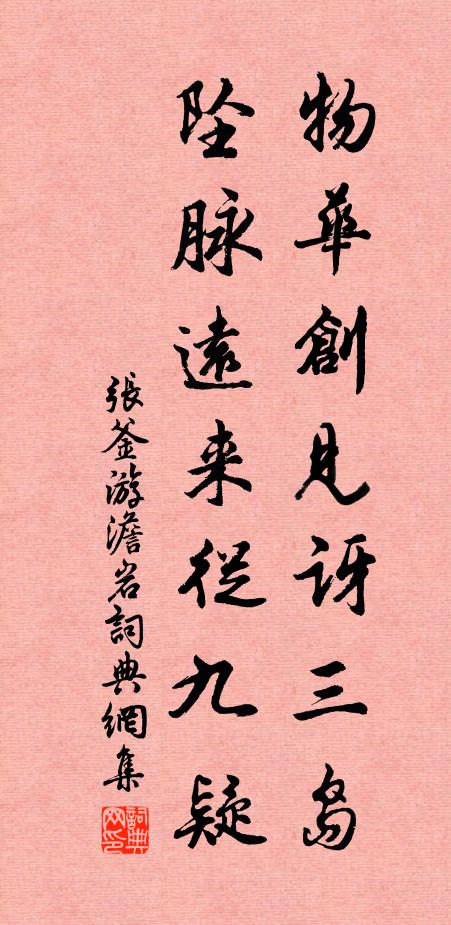 物華創見訝三島
坠脉遠来從九疑
張釜游澹岩詞典網集
詞典网印